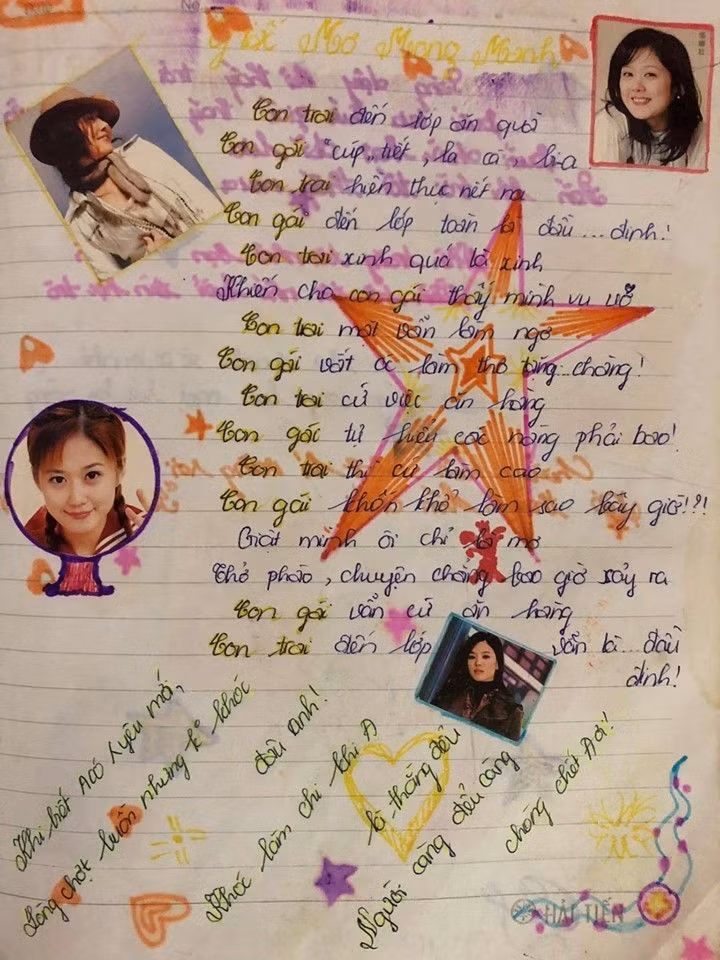 Giấc Mơ Mong Manh
Con trai đến lớp ăn quà
Con gái "cúp" tiết, la cà, bi-a
Con trai hiền thục nết na
Con gái đến lớp toàn là đầu... đinh!
Con trai xinh quá là xinh
Khiến cho con gái thấy mình vu vơ
Con trai mặt vẫn làm ngơ
Con gái vắt óc làm thơ tặng chàng!
Con trai cứ việc ăn hàng
Con gái tự hiểu các nàng phải bao!
Con trai thì cứ làm cao
Con gái khốn khổ làm sao bây giờ!?!
Giật mình ôi chỉ là mơ
Thở phào, chuyện chẳng bao giờ xảy ra
Con gái vẫn cứ ăn hàng
Con trai đến lớp vẫn là... đầu
đinh!
Khi biết A có người mới,
Lòng chợt buồn nhưng k khóc
đâu anh!
Khóc làm chi khi A
là thằng đểu
Người càng đểu càng
chóng chết A ơi!
HẢI TIẾN